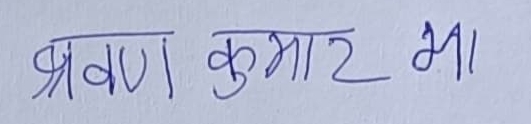 श्रवण कुमार झा